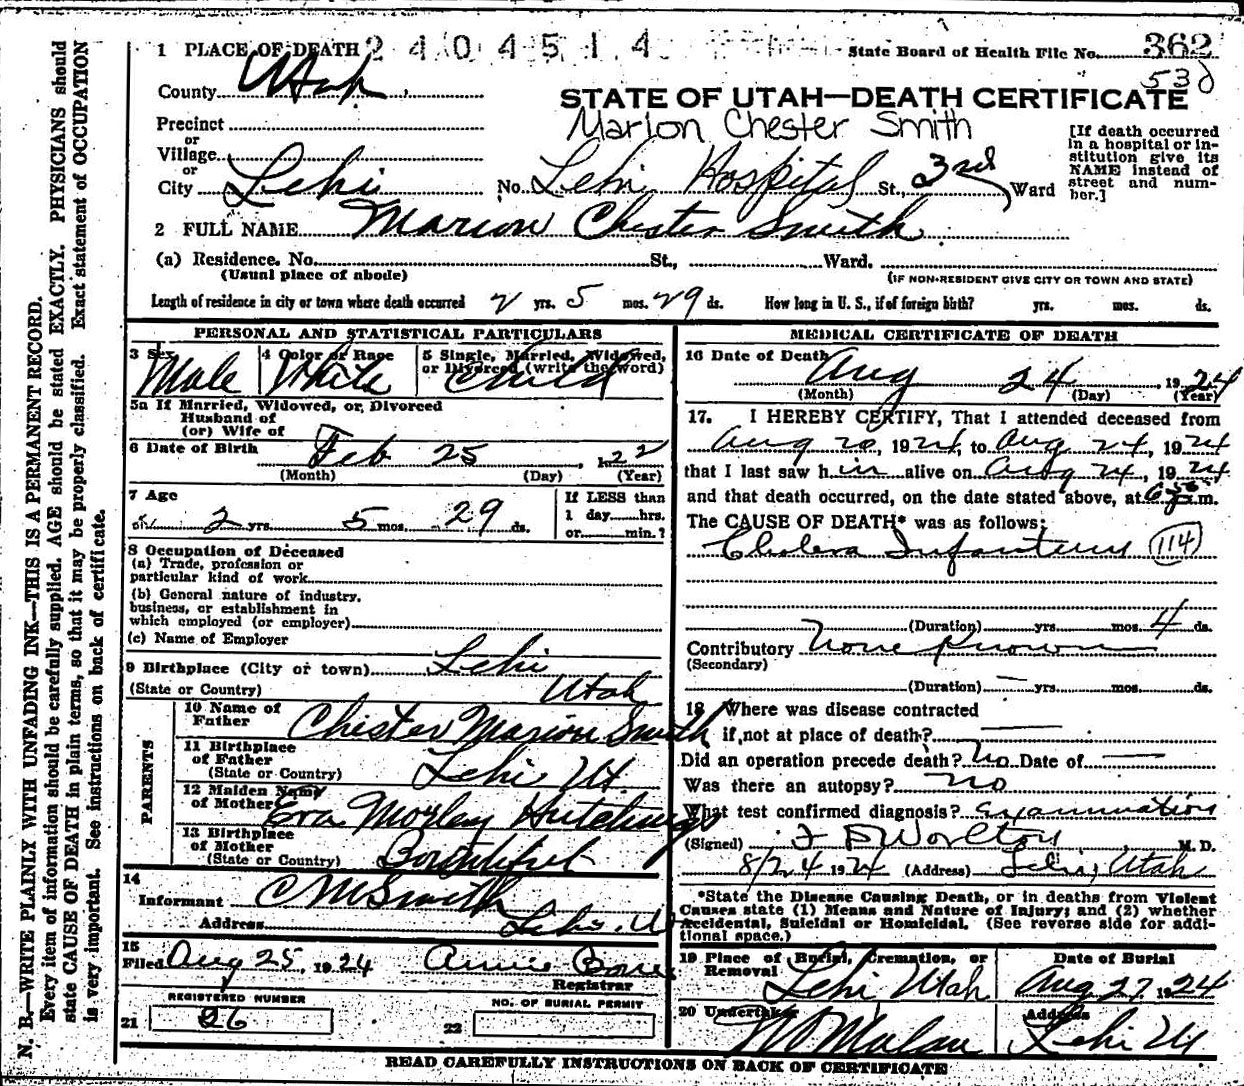 1 PLACE OF DEATH 2404514 State Board of Health File No. 362
530
County Utah
STATE OF UTAH—DEATH CERTIFICATE
Precinct
Marion Chester Smith
or
Village
or
City Lehi No. Lehi Hospital St., 3rd Ward
[If death occurred in a hospital or in-
stitution give its
NAME instead of
street and num-
ber.]
2 FULL NAME Marion Chester Smith
(a) Residence. No. St., Ward.
(Usual place of abode) (IF NON-RESIDENT GIVE CITY OR TOWN AND STATE)
Length of residence in city or town where death occurred 2 yrs. 5 mos. 29 ds. How long in U. S., if of foreign birth? yrs. mos. ds.
PERSONAL AND STATISTICAL PARTICULARS
3 Sex Male
4 Color or Race White
5 Single, Married, Widowed,
or Divorced (write the word) Child
5a If Married, Widowed, or Divorced
Husband of
(or) Wife of
6 Date of Birth Feb 25, 1922
(Month) (Day) (Year)
7 Age
2 yrs. 5 mos. 29 ds.
If LESS than
1 day hrs.
or min.?
8 Occupation of Deceased
(a) Trade, profession or
particular kind of work
(b) General nature of industry,
business, or establishment in
which employed (or employer)
(c) Name of Employer
9 Birthplace (City or town) Lehi
(State or Country) Utah
PARENTS
10 Name of
Father Chester Marion Smith
11 Birthplace
of Father
(State or Country) Lehi Ut.
12 Maiden Name
of Mother Eva Morley Hutchings
13 Birthplace
of Mother
(State or Country) Bountiful
14
Informant C M Smith
Address Lehi, U
15
Filed Aug 25, 1924 Annie
Registrar
REGISTERED NUMBER
21 26
NO. OF BURIAL PERMIT
22
MEDICAL CERTIFICATE OF DEATH
16 Date of Death Aug 24, 1924
(Month) (Day) (Year)
17. I HEREBY CERTIFY, That I attended deceased from
Aug 20, 1924, to Aug 24, 1924
that I last saw him alive on Aug 24, 1924
and that death occurred, on the date stated above, at 6 m.
The CAUSE OF DEATH* was as follows:
Cholera Infantum (114)
(Duration) yrs. mos. 4 ds.
Contributory None Known
(Secondary)
(Duration) — yrs. mos. ds.
18 Where was disease contracted
if not at place of death? —
Did an operation precede death? No Date of —
Was there an autopsy? no
What test confirmed diagnosis? Examination
(Signed) F D Worlton M. D.
8/24 1924 (Address) Lehi, Utah
*State the Disease Causing Death, or in deaths from Violent
Causes state (1) Means and Nature of Injury; and (2) whether
Accidental, Suicidal or Homicidal. (See reverse side for addi-
tional space.)
19 Place of Burial, Cremation, or
Removal Lehi Utah
Date of Burial
Aug 27, 1924
20 Undertaker
Address
Lehi Ut
READ CAREFULLY INSTRUCTIONS ON BACK OF CERTIFICATE
N. B.—WRITE PLAINLY WITH UNFADING INK—THIS IS A PERMANENT RECORD.
Every item of information should be carefully supplied. AGE should be stated EXACTLY. PHYSICIANS should
state CAUSE OF DEATH in plain terms, so that it may be properly classified. Exact statement of OCCUPATION
is very important. See instructions on back of certificate.